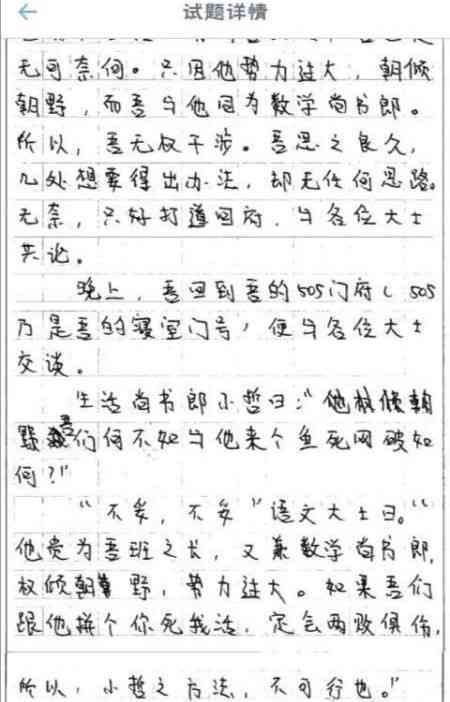 试题详情
无可奈何。只因他势力过大，朝倾
朝野，而吾与他同为数学尚书郎。
所以，吾无权干涉。吾思之良久，
几处想要得出办法，却无任何思路。
无奈，只好打道回府，与各位大士
共论。
晚上，吾回到吾的505门府（505
乃是吾的寝室门号），便与各位大士
交谈。
生活尚书郎小哲曰：“他权倾朝
野，吾们何不如与他来个鱼死网破如
何？”
“不妥，不妥”语文大士曰。“
他贵为吾班之长，又兼数学尚书郎，
权倾朝野，势力过大。如果吾们
跟他拼个你死我活，定会两败俱伤，
所以，小哲之方法，不可行也。”